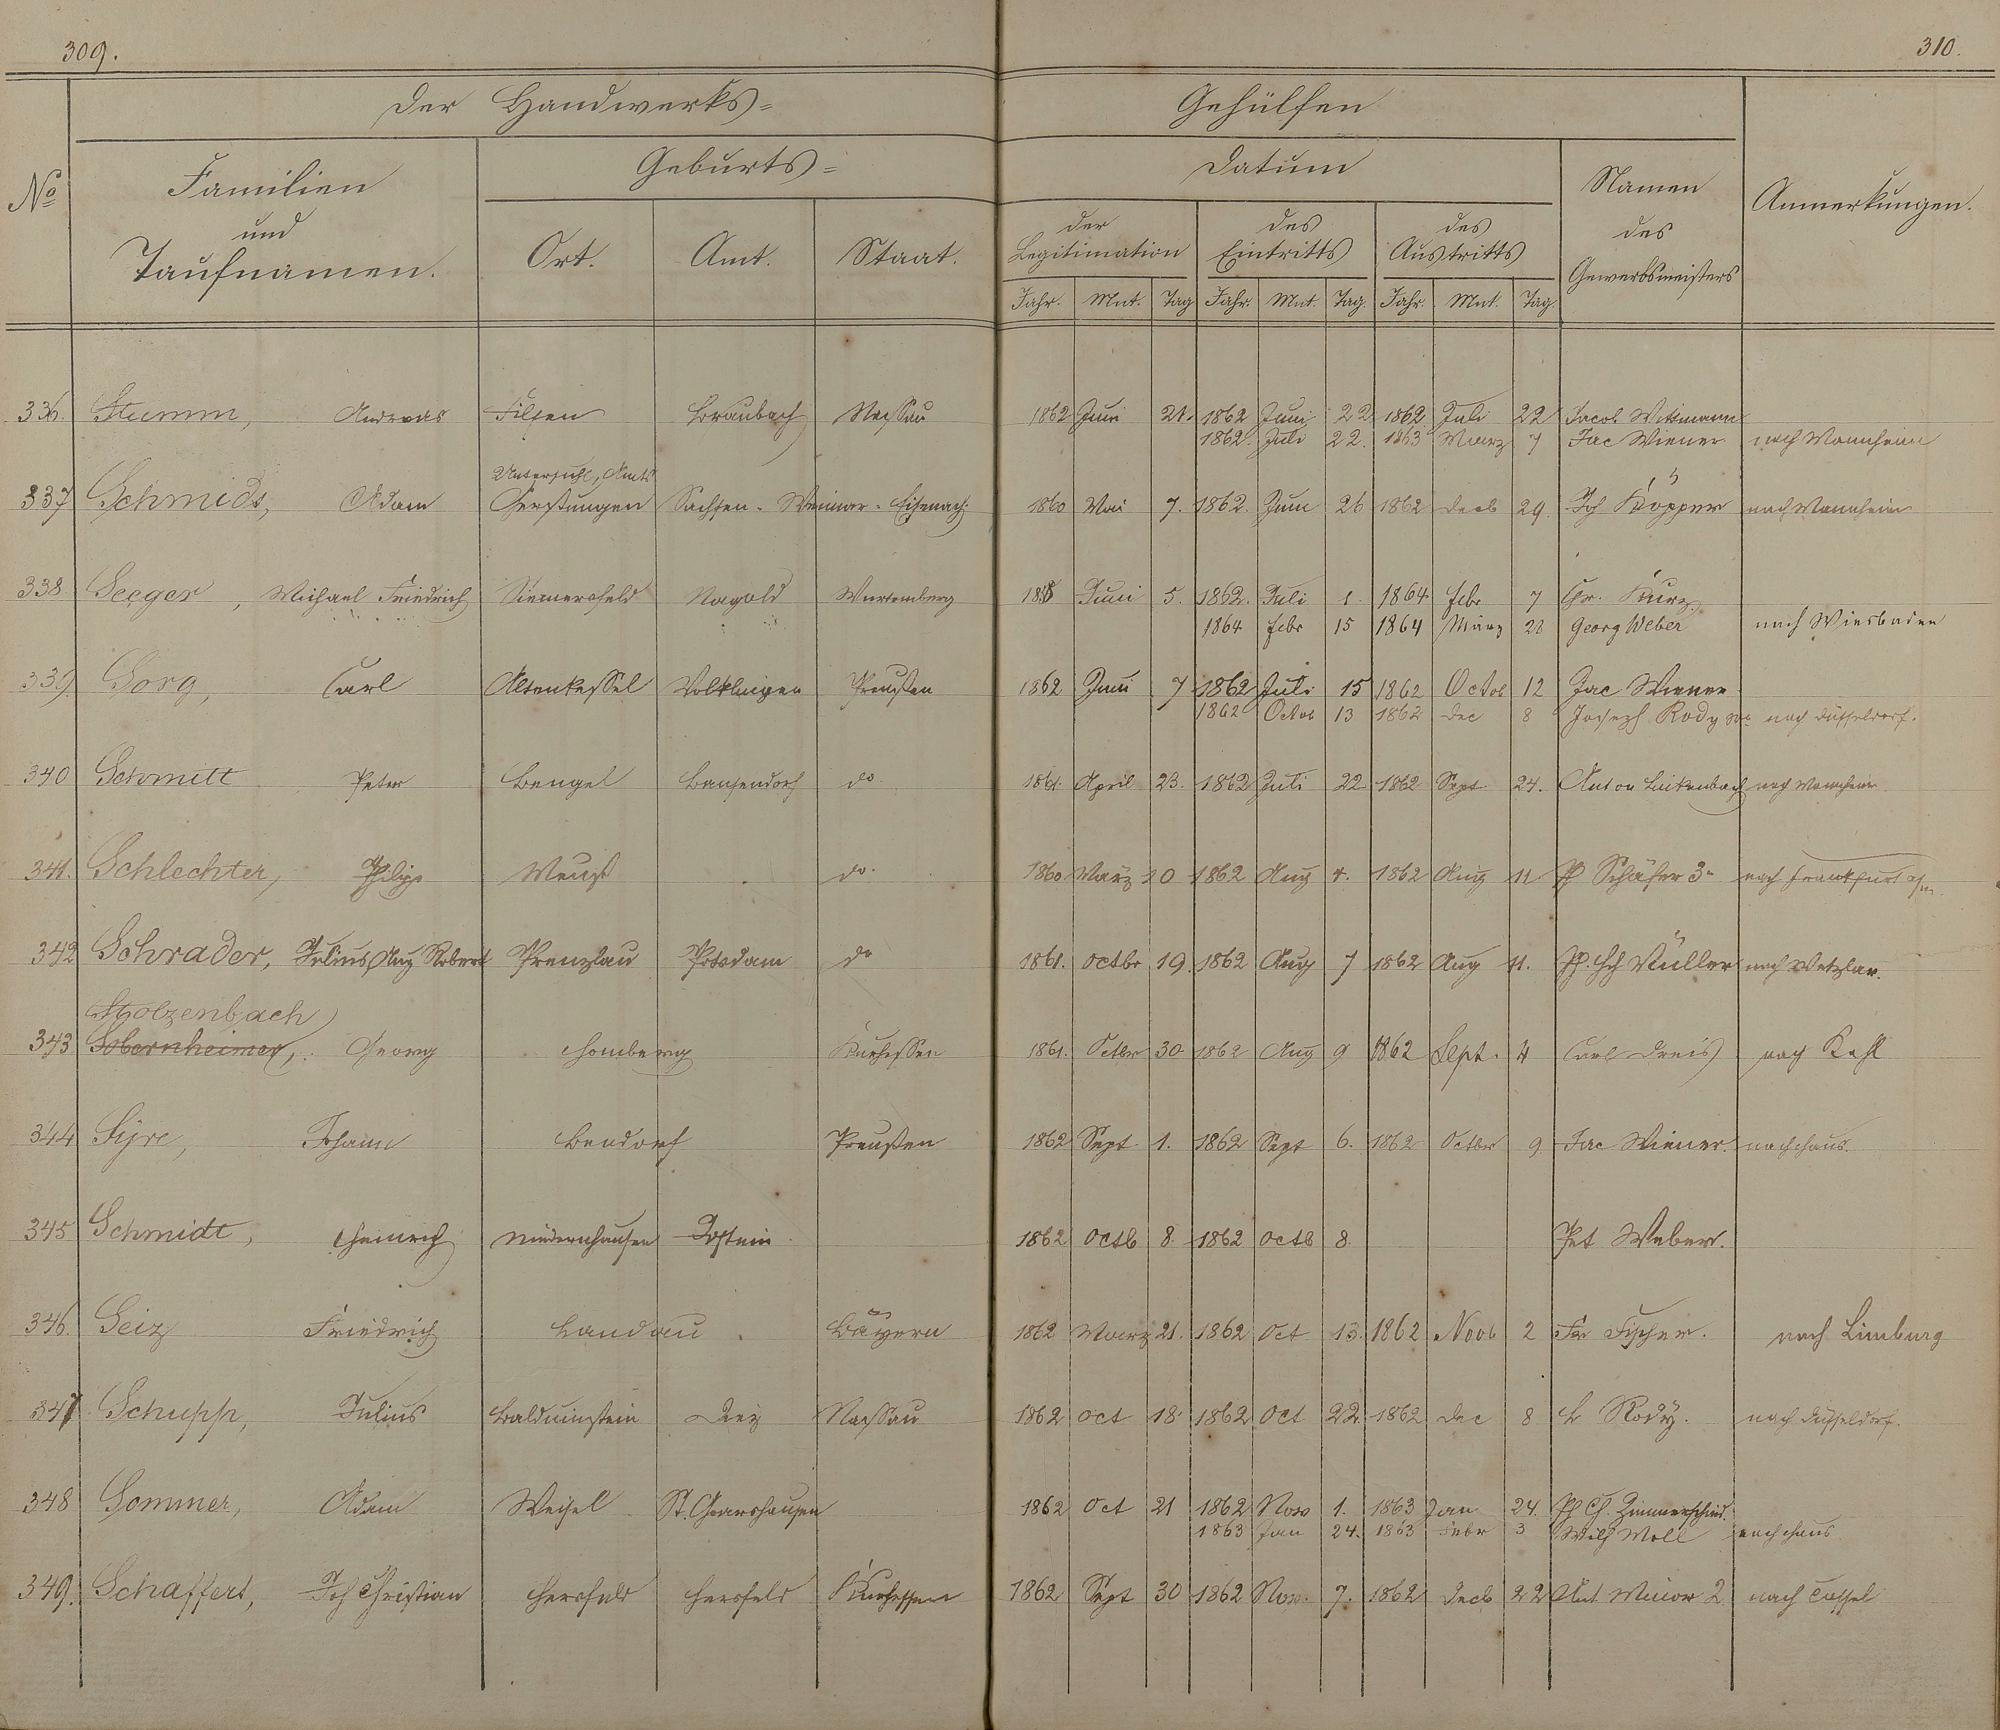 309.
310.
Der Handwerks=
Gehülfen
No
Familien
und
Taufnamen.
Geburts=
Ort.
Amt.
Staat.
Datum
der
Legitimation
des
Eintritts
des
Austritts
Jahr. Mnt. Tag Jahr. Mnt. Tag. Jahr. Mnt. Tag.
Namen
des
Gewerbsmeisters
Anmerkungen.
336. Stumm, Andreas Filsen Braubach Nassau 1862 Juni 21. 1862 Juni 22 1862 Juli 22 Jacob Wittmann
1862. Juli 22. 1863 März 7 Jac Wiener nach Mannheim
Untersuhl, Amts
337 Schmids, Adam Gerstungen Sachsen-Weimar-Eisenach 1860 Mai 7. 1862. Juni 26 1862 Decb 29. Joh Küpper nach Mannheim
338 Seeger, Michael Friedrich Simmersfeld Nagold Würtemberg Juni 5. 1862. Juli 1. 1864 febr 7 Chr. Kurz.
1864 febr 15 1864 März 28 Georg Weber nach Wiesbaden
339. Sorg, Carl Altenkessel Völklingen Preußen 1862 Juni 7 1862 Juli 15 1862 Octob 12 Jac Wiener
1862 Octob 13 1862 Dec 8 Joseph Rody nach Düsseldorf.
340 Schmitt Peter Bengel Bausendorf do 1861. April 23. 1862 Juli 22 1862 Sept 24. Anton Luckenbach nach Mannheim
341. Schlechter, Philipp do. 1860 März 20 1862 Aug 4. 1862 Aug 11 Ph Schäfer 3r nach Frankfurt a/m.
342 Schrader, Julius Aug Robert Prenzlau Potsdam do 1861. Octbr 19. 1862 Aug 7 1862 Aug 11. Ph. Hch Müller nach Wetzlar.
Stolzenbach
343 Sobernheimer, Georg Homberg Kurhessen 1861. Octbr 30 1862 Aug 9 1862 Sept. 4 Carl Dreis nach Kehl
344 Syre, Johann Bendorf Preußen 1862 Sept 1. 1862 Sept 6. 1862 Octbr 9 Jac Wiener. nach Haus.
345 Schmidt, Heinrich Niedernhausen Idstein 1862 Octb 8. 1862 Octb 8. Pet Weber.
346. Seiz Friedrich Landau. Bayern 1862 März 21. 1862 Oct 13. 1862 Novb 2 Fr Fischer. nach Limburg
347 Schupp, Julius Balduinstein Diez Nassau 1862 Oct 18. 1862 Oct 22. 1862 Dec 8 Rody. nach Düsseldorf.
348 Sommer, Adam Weisel St. Goarshausen 1862 Oct 21 1862 Nov 1. 1863 Jan 24. Ph Ch. Zimmerschied.
1863 Jan 24. 1863 Febr 3 Wilh Moll nach Haus
349. Schaffert, Joh Christian Hersfeld Hersfeld Kurhessen 1862 Sept 30 1862 Nov. 7. 1862 Decb 22 Ant 2. nach Cassel